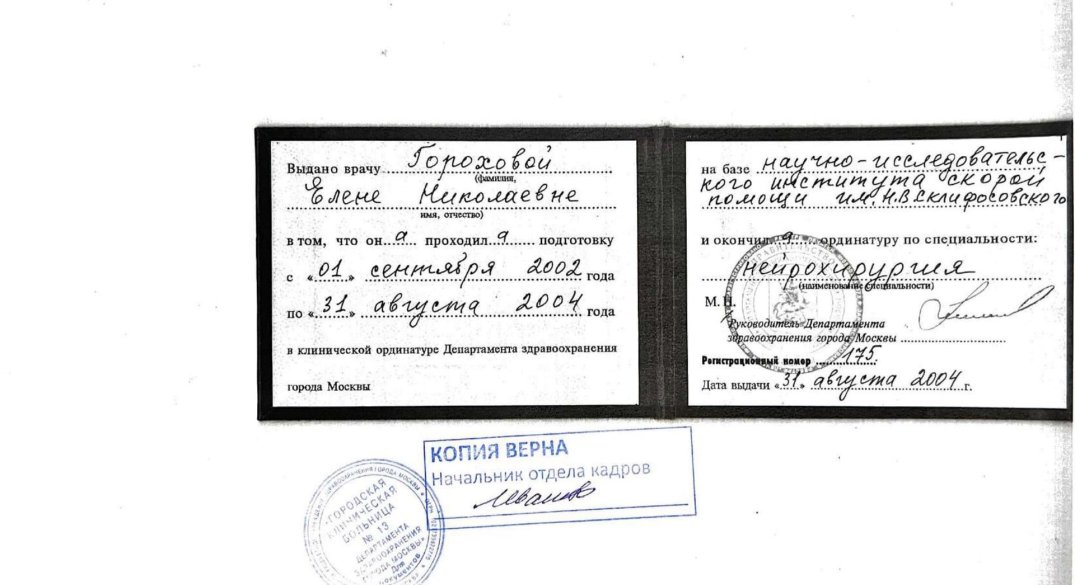 Выдано врачу Гороховой
(фамилия,
Елене Николаевне
имя, отчество)
в том, что он а проходил а подготовку
с «01» сентября 2002 года
по «31» августа 2004 года
в клинической ординатуре Департамента здравоохранения
города Москвы
на базе научно-исследовательс-
кого института скорой
помощи им. Н.В.Склифосовского
и окончил а ординатуру по специальности:
нейрохирургия
(наименование специальности)
М. П.
Руководитель Департамента
здравоохранения города Москвы
Регистрационный номер 175
Дата выдачи «31» августа 2004 г.
КОПИЯ ВЕРНА
Начальник отдела кадров
ЗДРАВООХРАНЕНИЯ ГОРОДА МОСКВЫ
ГОРОДСКАЯ
КЛИНИЧЕСКАЯ
БОЛЬНИЦА
№ 13
ДЕПАРТАМЕНТА
ЗДРАВООХРАНЕНИЯ
ГОРОДА МОСКВЫ»
Для
документов